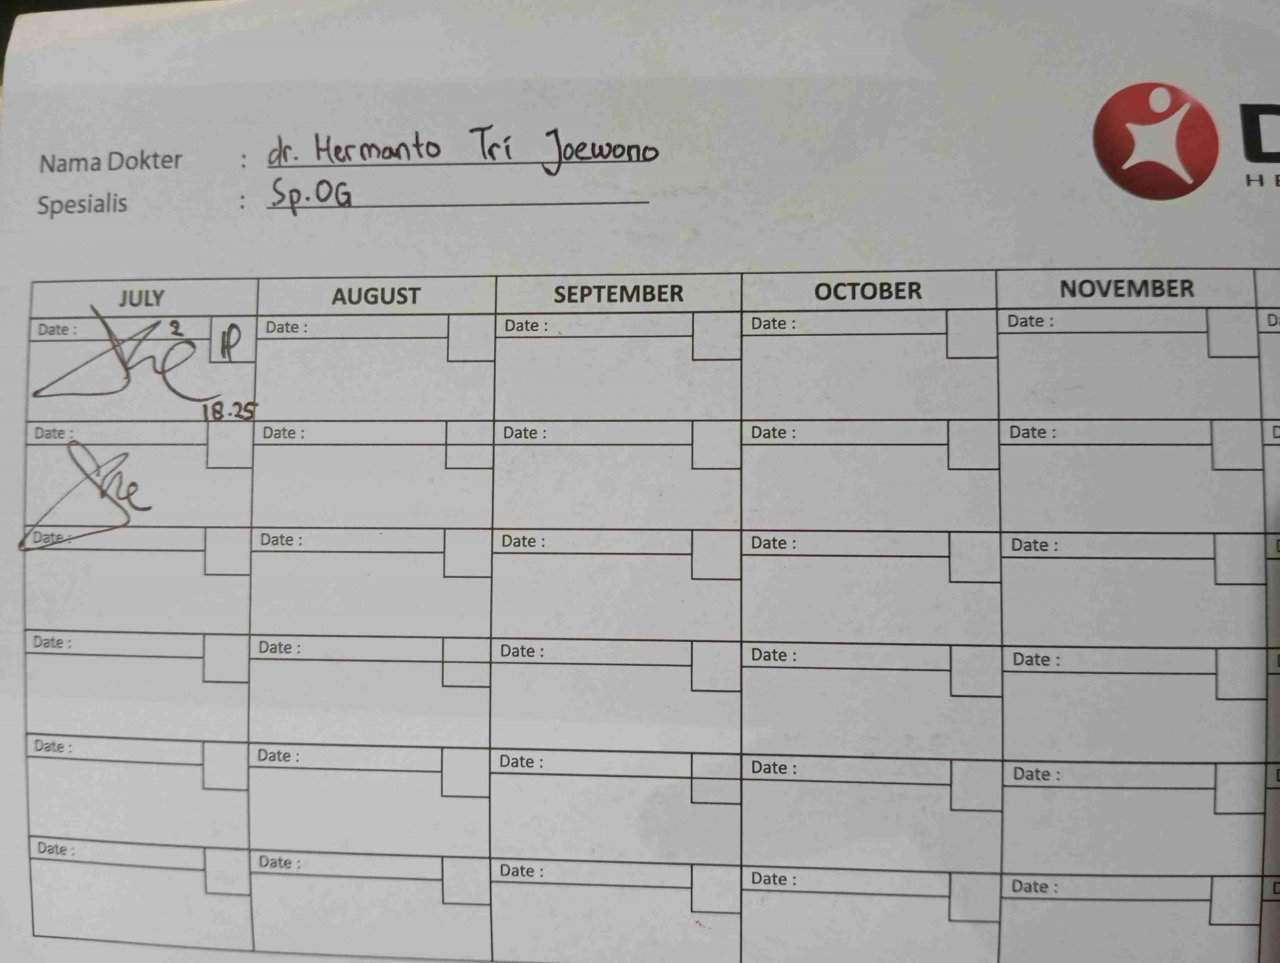 Nama Dokter : dr. Hermanto Tri Joewono
Spesialis : Sp.OG
JULY AUGUST SEPTEMBER OCTOBER NOVEMBER
Date : 2 Date : Date : Date : Date :
18.25
Date : Date : Date : Date : Date :
Date : Date : Date : Date : Date :
Date : Date : Date : Date : Date :
Date : Date : Date : Date : Date :
Date : Date : Date : Date : Date :